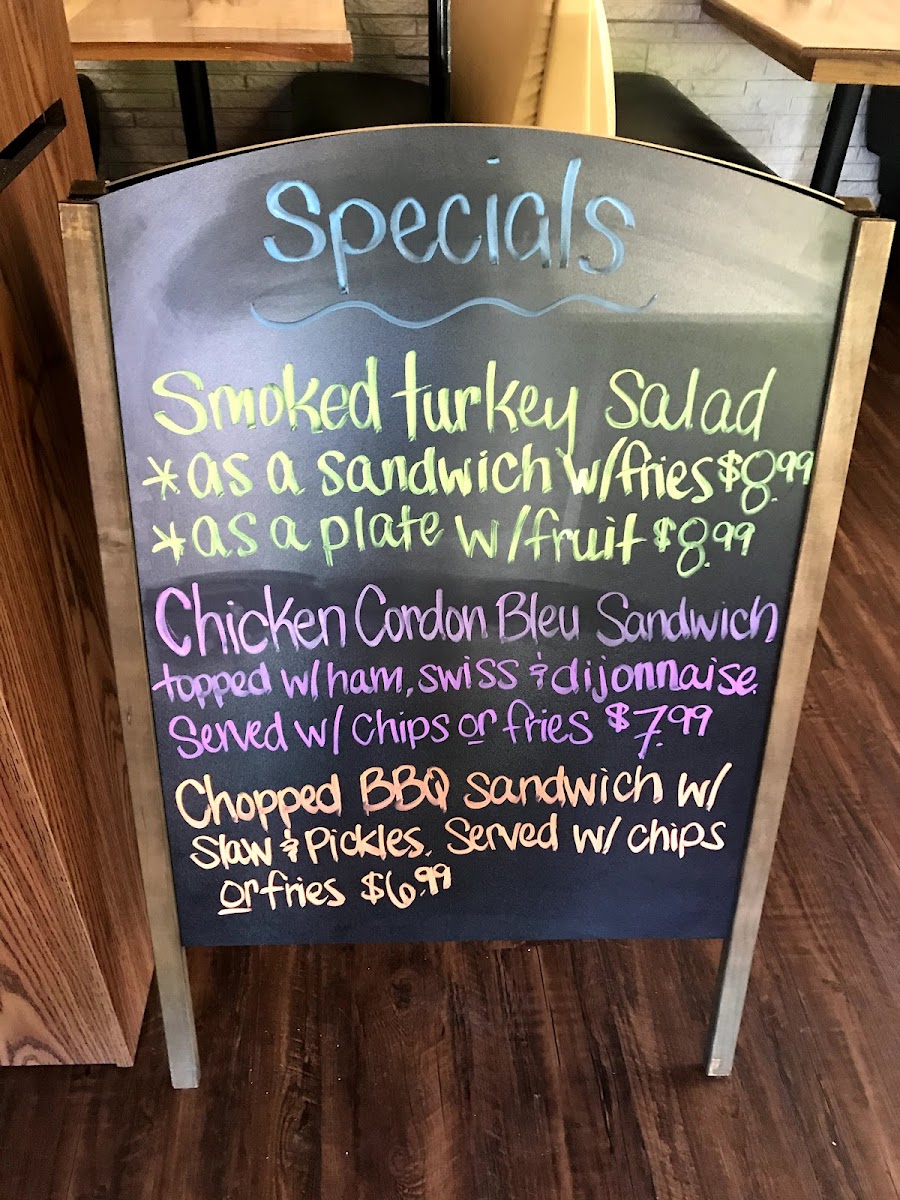 Specials
Smoked turkey Salad
*as a sandwich w/fries $8.99
*as a plate w/fruit $8.99
Chicken Cordon Bleu Sandwich
topped w/ham, swiss & dijonnaise.
Served w/ chips or fries $7.99
Chopped BBQ sandwich w/
Slaw & Pickles. Served w/ chips
or fries $6.99